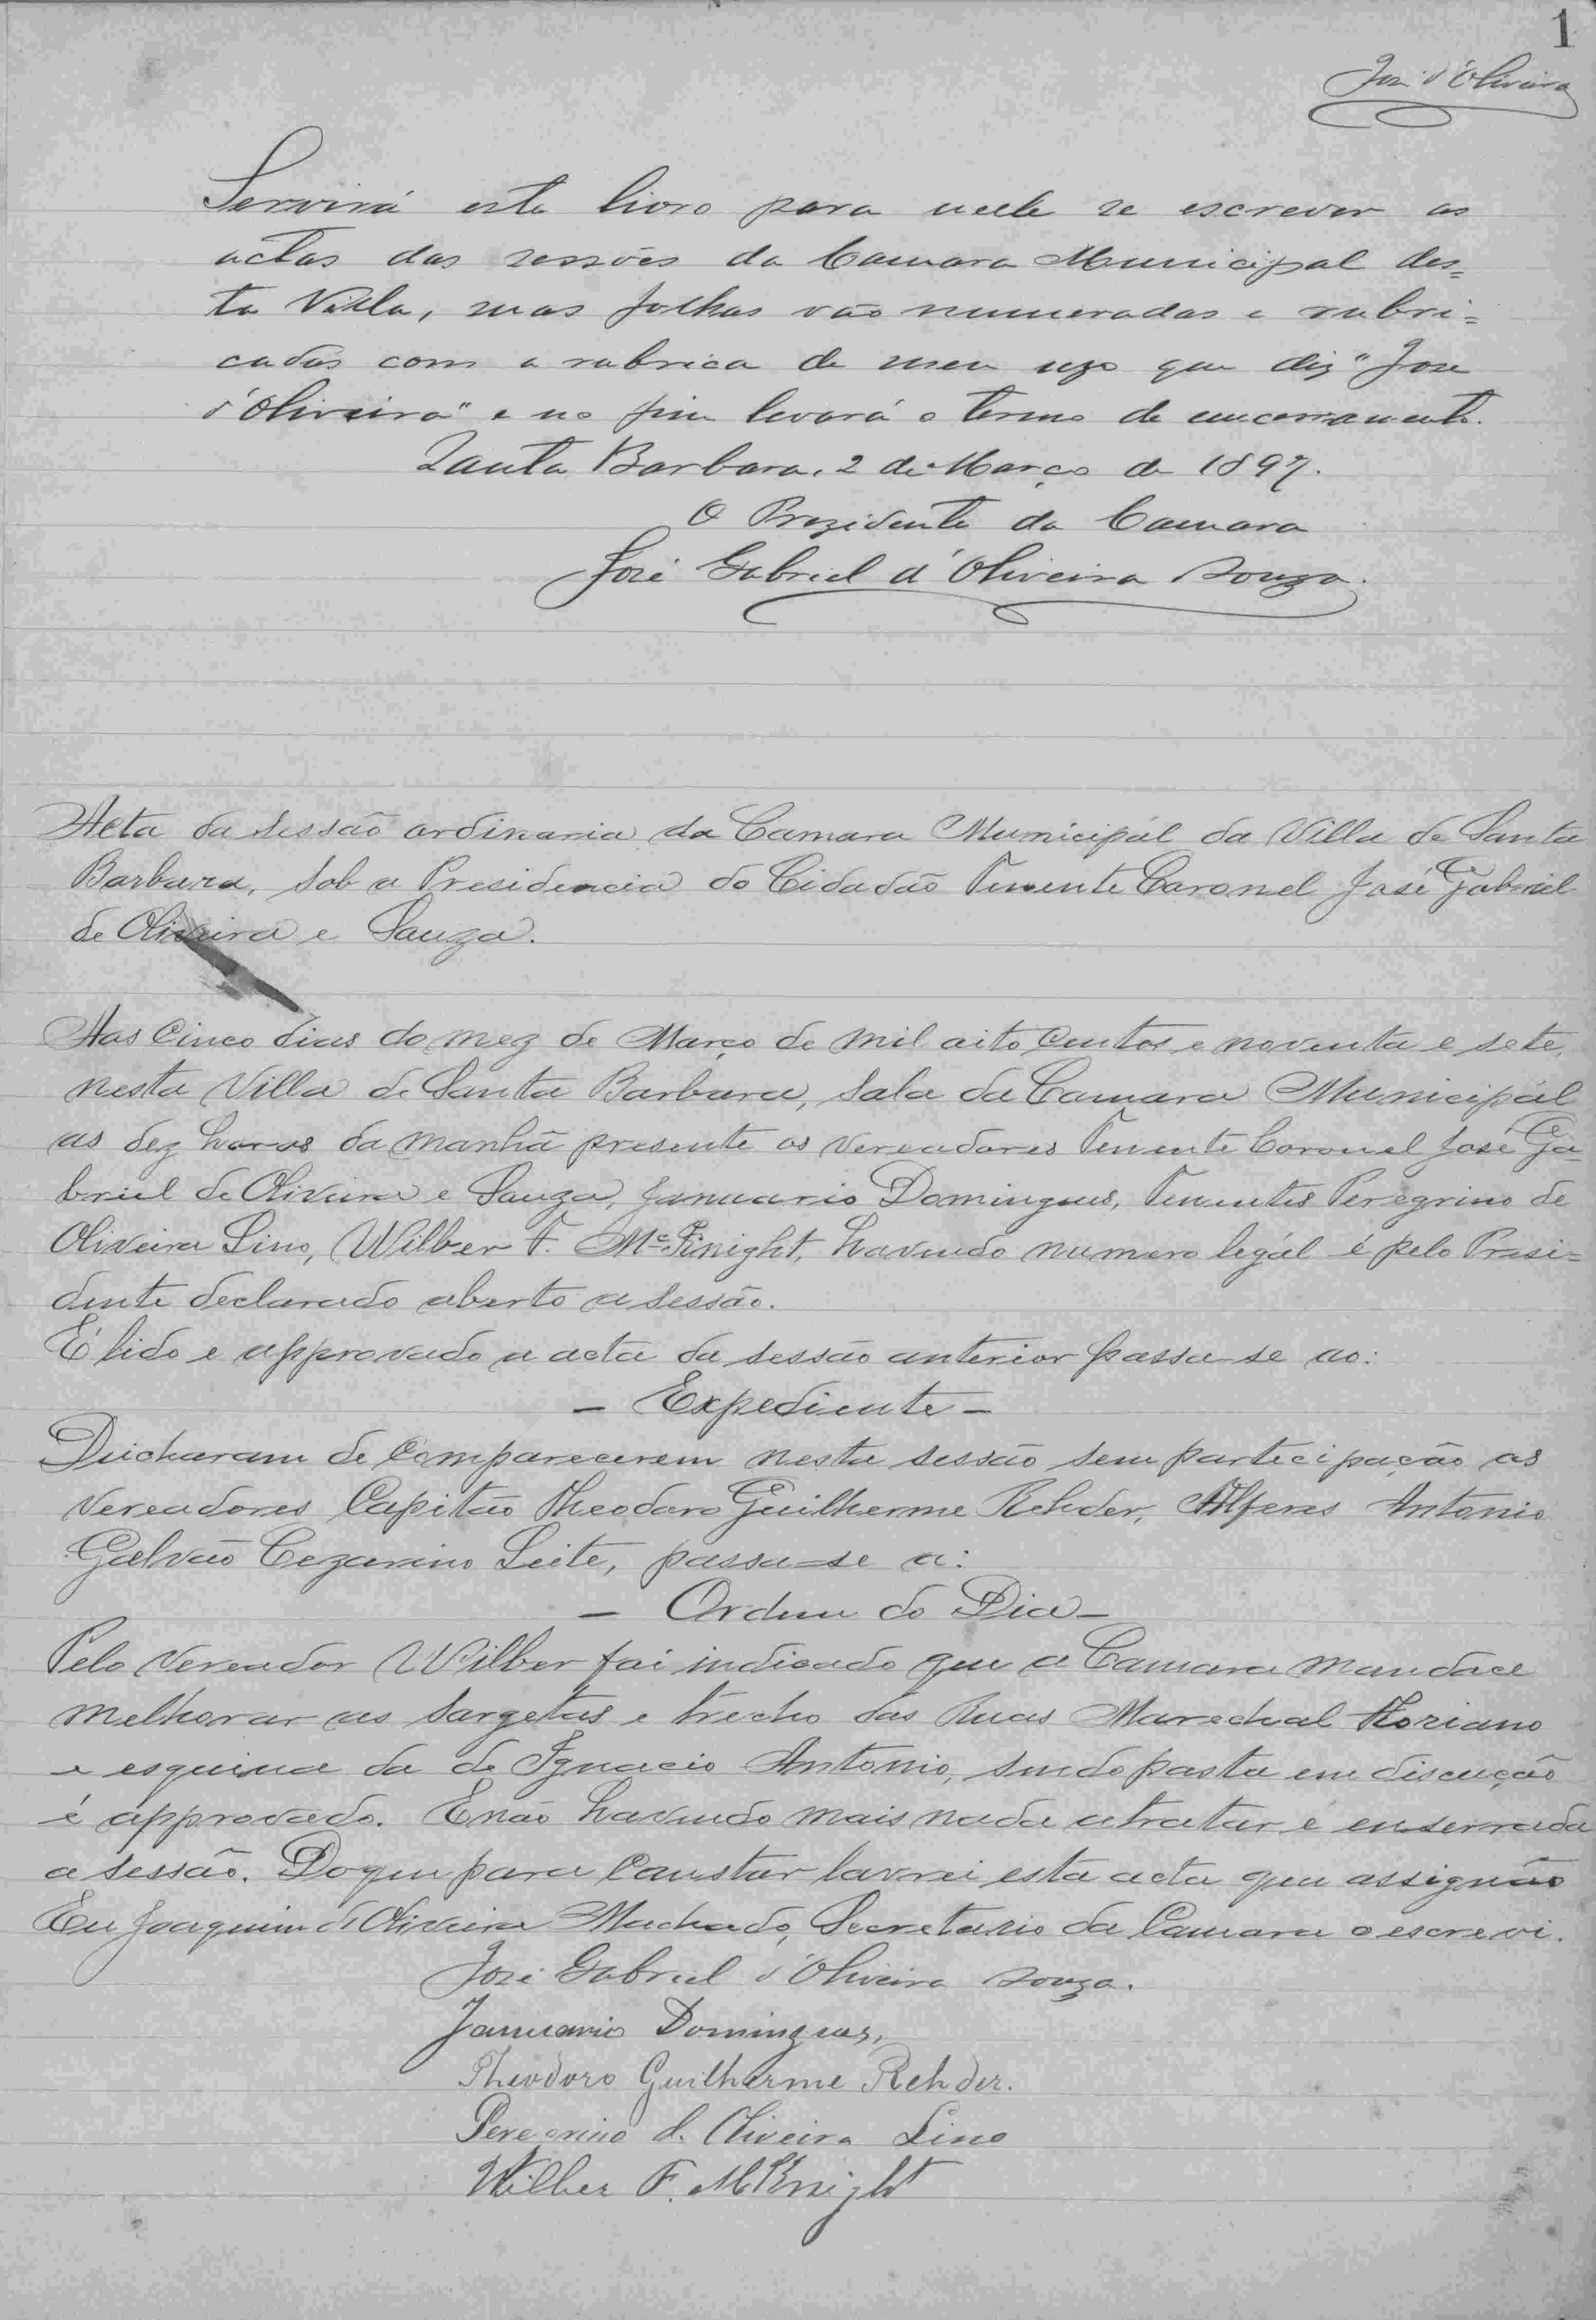 1
José d'Oliveira
Servirá este livro para nelle se escrever as
actas das sessões da Camara Municipal des=
ta Villa, suas folhas vão numeradas e rubri=
cadas com a rubrica de meu uzo que diz "José
d'Oliveira" e no fim levará o termo de encerramento.
Santa Barbara, 2 de Março de 1897.
O Prezidente da Camara
José Gabriel d'Oliveira Souza.
Acta da sessão ordinaria da Camara Municipál da Villa de Santa
Barbara, sob a Presidencia do Cidadão Tenente Coronel José Gabriel
de Oliveira e Souza.
Aos Cinco dias do mez de Março de mil oito Centos e noventa e sete,
nesta Villa de Santa Barbara, Sala da Camara Municipál
as dez horas da manhã presente os Vereadores Tenente Coronel José Ga=
briel de Oliveira e Souza, Januario Domingues, Tenentes Peregrino de
Oliveira Lino, Wilber F. Mc Knight, havendo numero legál é pelo Presi=
dente declarado aberto a sessão.
É lido e approvado a acta da sessão anterior passa-se ao:
- Expediente -
Deicharam de Comparecerem nesta sessão sem participação os
Vereadores Capitão Theodoro Guilherme Rehder, Alferes Antonio
Galvão Cezarino Leite, passa-se a:
- Ordem do Dia -
Pelo Vereador Wilber foi indicado que a Camara mandace
melhorar as sargetas e trecho das Ruas Marechal Floriano
e esquina da de Ignacio Antonio, sendo posta em discução
é approvado. E não havendo mais nada a tratar é enserrada
a sessão. Do que para Constar lavrei esta acta que assignão
Eu Joaquim de Oliveira Machado, Secretario da Camara o escrevi.
José Gabriel d'Oliveira Souza.
Januario Domingues,
Theodoro Guilherme Rehder.
Peregrino d. Oliveira Lino
Wilber F. McKnight